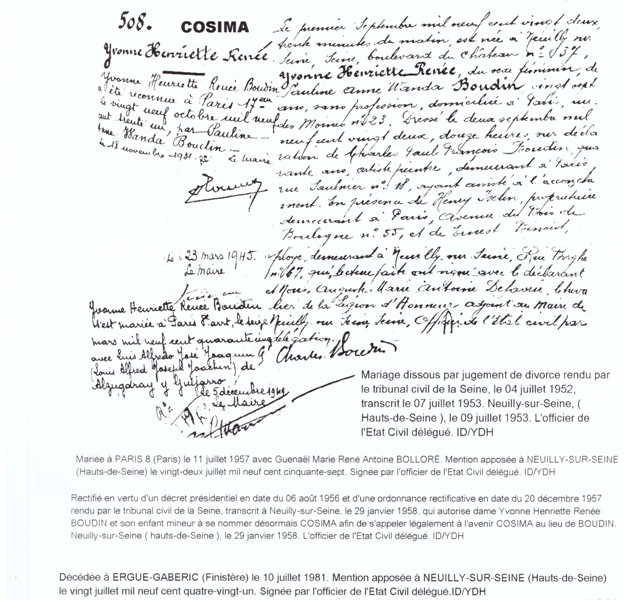 508.
COSIMA
Yvonne Henriette Renée
Yvonne Henriette Renée Boudin
a été reconnue à Paris 17eme
le vingt neuf octobre mil neuf
cent trente un, par Pauline
Anne Wanda Boudin
le 18 novembre 1931. Le Maire
Le premier Septembre mil neuf cent vingt deux,
trente minutes du matin, est née à Neuilly sur
Seine, Seine, boulevard du Château n° 137,
Yvonne Henriette Renée, du sexe féminin, de
Pauline Anne Wanda Boudin vingt sept
ans, sans profession, domiciliée à Paris, rue
des Moines n° 23. Dressé le deux septembre mil
neuf cent vingt deux, douze heures, sur décla
ration de Charles Paul François Boudin, qua
rante ans, artiste peintre, demeurant à Paris
rue Saulnier n° 18, ayant assisté à l'accouche
ment. En présence de Henry Iselin, propriétaire
demeurant à Paris, Avenue du Bois de
Boulogne n° 55, et de Ernest
ploye, demeurant à Neuilly sur Seine, Rue
n° 67, qui, lecture faite ont signé avec le déclarant
et Nous, Auguste Marie Antoine Cheva
lier de la Légion d'Honneur adjoint au Maire de
Neuilly sur Seine, Seine, Officier de l'Etat civil par
délégation.
Charles Boudin
Le 23 mars 1945.
Le Maire
Yvonne Henriette Renée Boudin
s'est mariée à Paris 8° arr., le seize
mars mil neuf cent quarante cinq
avec Luis Alfredo José Joaquin
(Louis Alfred Joseph Joachim) de
Alzugaray y Guijarro
le 5 décembre 1949
Le Maire
Mariage dissous par jugement de divorce rendu par
le tribunal civil de la Seine, le 04 juillet 1952,
transcrit le 07 juillet 1953. Neuilly-sur-Seine, (
Hauts-de-Seine ), le 09 juillet 1953. L'officier de
l'Etat Civil délégué. ID/YDH
Mariée à PARIS 8 (Paris) le 11 juillet 1957 avec Guenaël Marie René Antoine BOLLORÉ. Mention apposée à NEUILLY-SUR-SEINE
(Hauts-de-Seine) le vingt-deux juillet mil neuf cent cinquante-sept. Signée par l'officier de l'Etat Civil délégué. ID/YDH
Rectifié en vertu d'un décret présidentiel en date du 06 août 1956 et d'une ordonnance rectificative en date du 20 décembre 1957
rendu par le tribunal civil de la Seine, transcrit à Neuilly-sur-Seine, le 29 janvier 1958, qui autorise dame Yvonne Henriette Renée
BOUDIN et son enfant mineur à se nommer désormais COSIMA afin de s'appeler légalement à l'avenir COSIMA au lieu de BOUDIN.
Neuilly-sur-Seine ( hauts-de-Seine ). le 29 janvier 1958. L'officier de l'Etat Civil délégué. ID/YDH
Décédée à ERGUE-GABERIC (Finistère) le 10 juillet 1981. Mention apposée à NEUILLY-SUR-SEINE (Hauts-de-Seine)
le vingt juillet mil neuf cent quatre-vingt-un. Signée par l'officier de l'Etat Civil délégué.ID/YDH